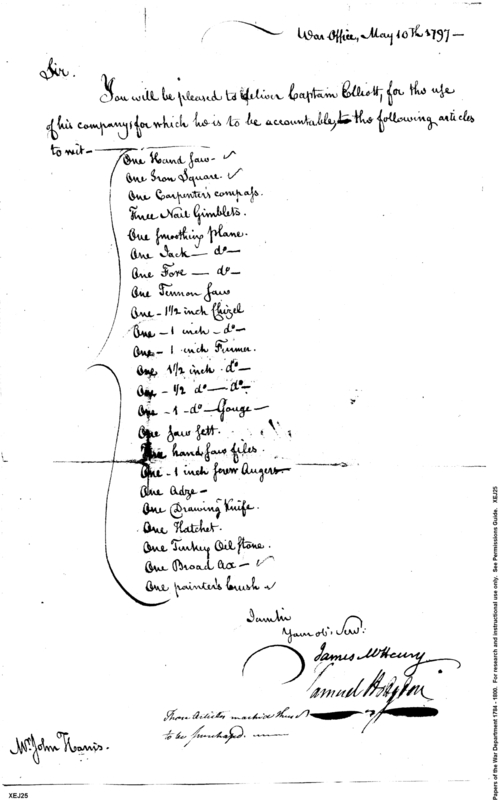 War Office, May 10th 1797 —
Sir.
You will be pleased to deliver Captain Elliott, for the use
of his company; for which he is to be accountable, the following articles
to wit —
One Hand saw — ✓
One Iron Square. ✓
One Carpenter's compass.
Three Nail Gimblets.
One smoothing plane.
One Jack — do —
One Fore — do —
One Tennon saw
One — 1 1/2 inch Chizel
One — 1 inch — do —
One — 1 inch Firmer.
One 1 1/2 inch do —
One — 1/2 do — do —
One — 1 — do — Gouge —
One saw sett.
hand saw files.
One — 1 inch screw Auger
One Adze —
One Drawing Knife.
One Hatchet.
One Turkey Oil stone.
One Broad Ax — ✓
One painter's brush ✓
I am Sir
Your ob. Serv:
James McHenry
Samuel Hodgdon
Those Articles marked thus ✓
to be purchased. —
Mr. John Harris.
XEJ25
Papers of the War Department 1784 - 1800. For research and instructional use only. See Permissions Guide. XEJ25